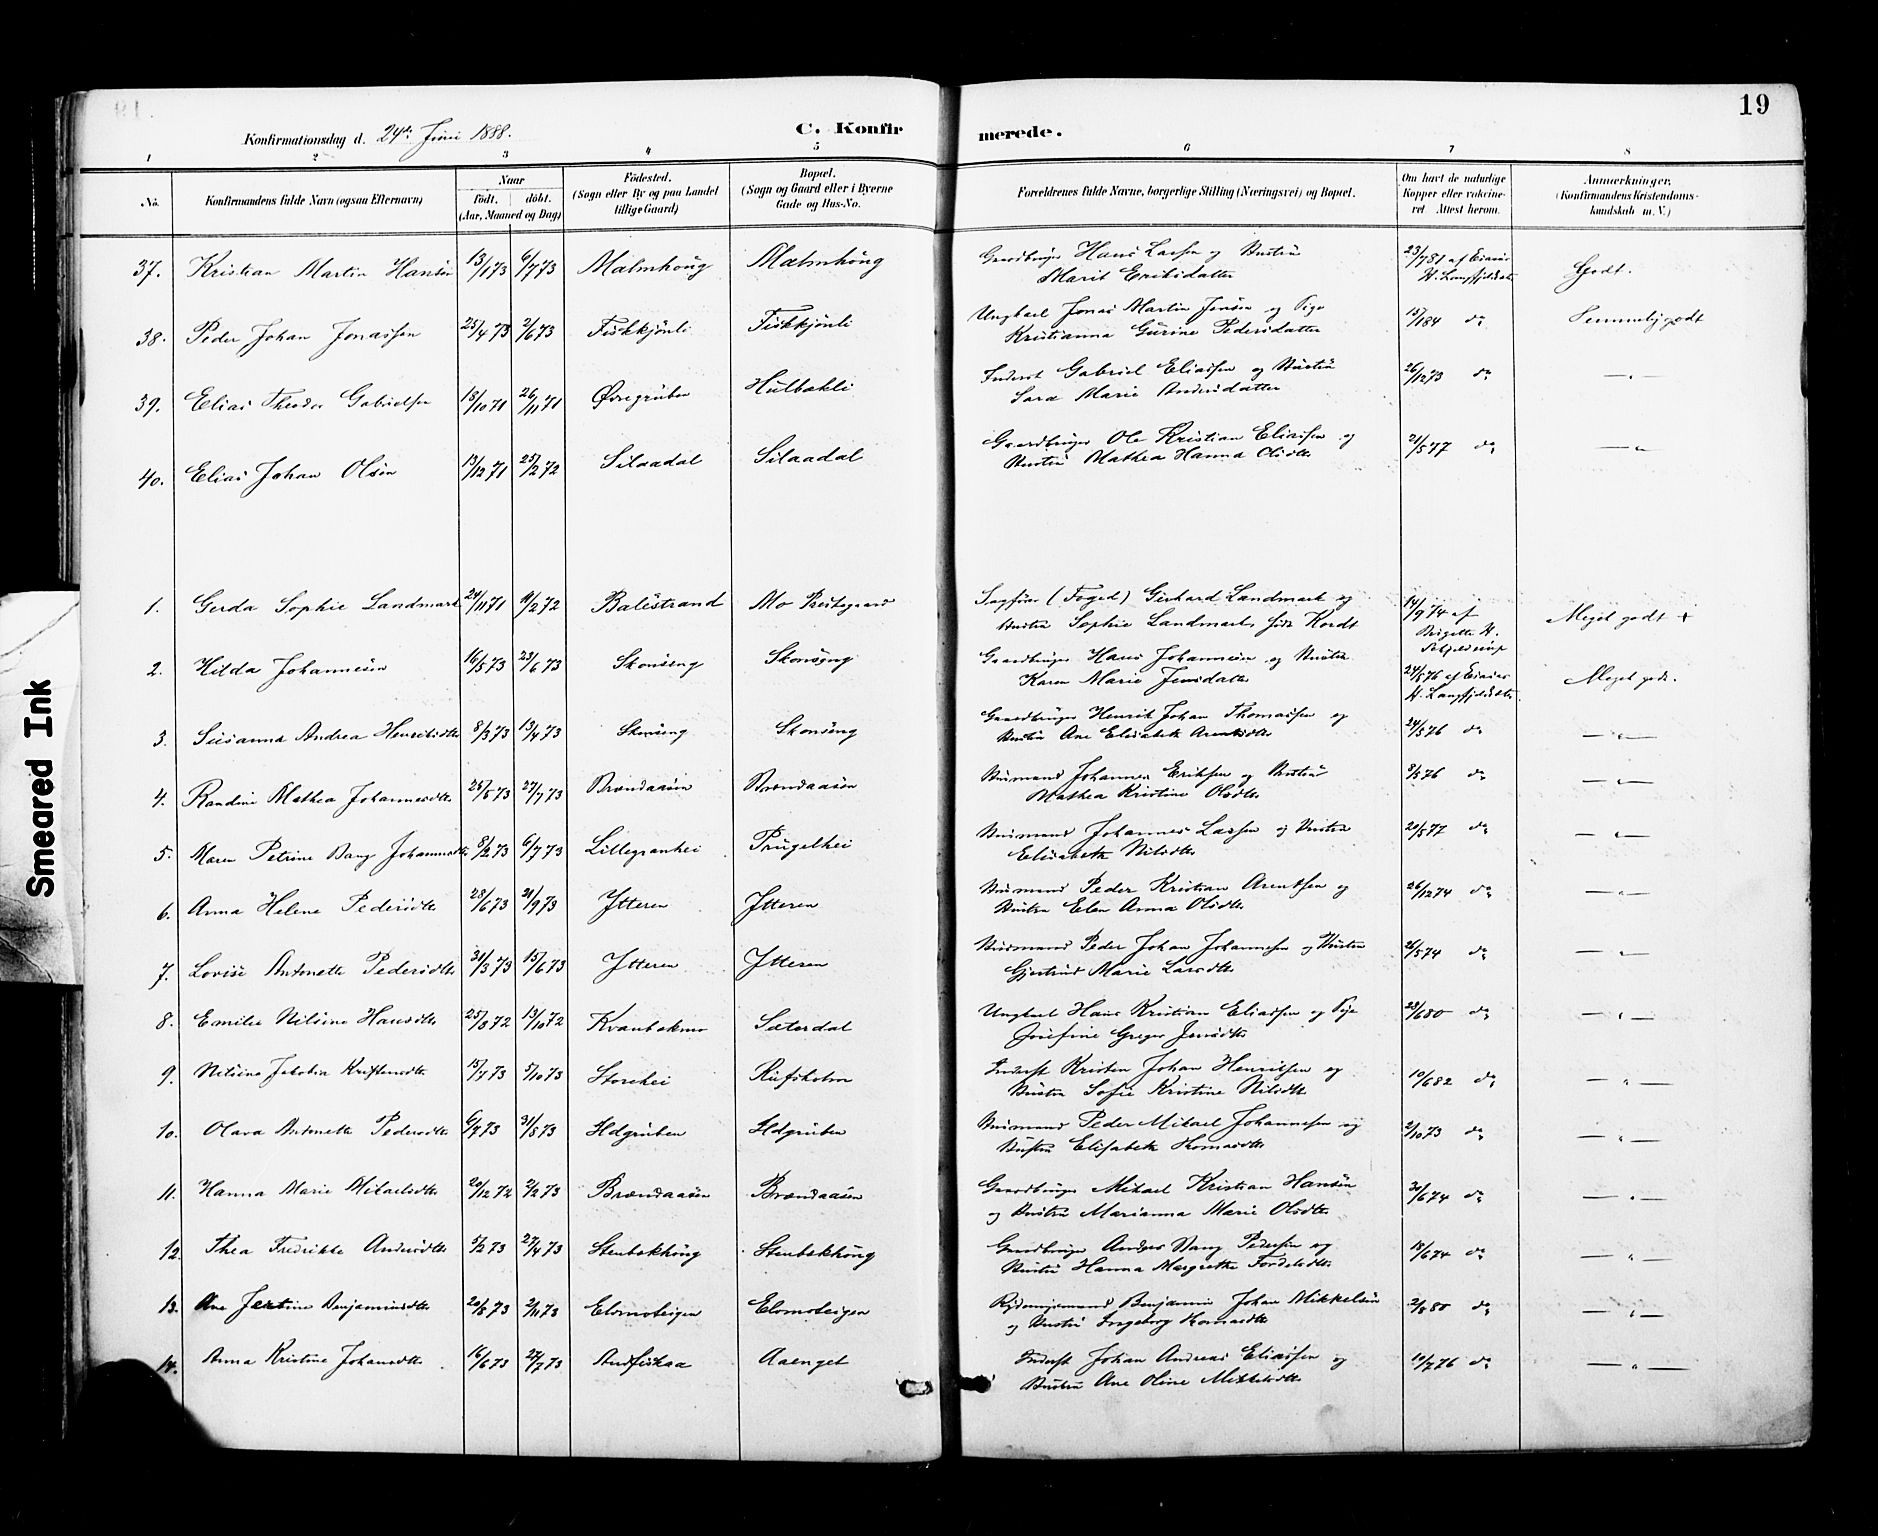 19
Konfirmationsdag d. 24de Juni 1888.
C. Konfirmerede.
1 2 3 4 5 6 7 8
No.
Konfirmandens fulde Navn (ogsaa Efternavn)
Naar
födt. döbt.
(Aar, Maaned og Dag)
Födested.
(Sogn eller By og paa Landet
tillige Gaard)
Bopæl.
(Sogn og Gaard eller i Byerne
Gade og Hus-No.
Forældrenes fulde Navne, borgerlige Stilling (Næringsvei) og Bopæl.
Om havt de naturlige
Kopper eller vakcine-
ret Attest herom.
Anmærkninger,
(Konfirmandens Kristendoms-
kundskab m. V.)
37. Kristian Martin Hansen 13/1 73 6/7 73 Malmhoug Malmhoug Gaardbruger Hans Larsen og Hustru
Marit Eriksdatter 23/7 81 af Esaias
H. Langfjeldsdtr Godt.
38. Peder Johan Jonassen 25/4 73 2/6 73 Fiskkjönli Fiskkjönli Ungkarl Jonas Martin Jensen og Pige
Kristianna Gurine Pedersdatter 15/1 84 do Temmelig godt
39. Elias Theodor Gabrielsen 18/10 71 26/11 71 Övregruben Hulbækli Inderst Gabriel Eliassen og Hustru
Sara Marie Andersdatter 26/12 73 do — " —
40. Elias Johan Olsen 13/12 71 25/2 72 Silaadal Silaadal Gaardbruger Ole Kristian Eliassen og
Hustru Mathea Hanna Olsdtr 21/5 77 do — " —
1. Gerda Sophie Landmark 24/11 71 11/2 72 Balestrand Mo Prestegaard Sagförer (Foged) Gerhard Landmark og
Hustru Sophie Landmark född Kordt 14/9 74 af
Birgitte H. Meget godt +
2. Hilda Johannesen 16/5 73 23/6 73 Skonseng Skonseng Gaardbruger Hans Johannesen og Hustru
Karen Marie Jensdatter 24/5 76 af Esaias
H. Langfjeldsdtr Meget godt.
3. Susanna Andrea Henriksdtr 8/3 73 13/4 73 Skonseng Skonseng Gaardbruger Henrik Johan Thomassen og
Hustru Ane Elisabeth Arentsdtr 24/5 76 do — " —
4. Randine Mathea Johannesdtr 25/5 73 27/7 73 Brændaasen Brændaasen Husmand Johannes Eriksen og Hustru
Mathea Kristine Olsdtr 8/5 76 do — " —
5. Maren Petrine Bang Johannesdtr 8/2 73 6/7 73 Lillegranhei Prügelhei Husmand Johannes Larsen og Hustru
Elisabeth Nilsdtr 20/5 77 do — " —
6. Anna Helene Pedersdtr 28/6 73 21/9 73 Ytteren Ytteren Husmand Peder Kristian Arentsen og
Hustru Elen Anna Olsdtr 26/12 74 do — " —
7. Lovise Antonette Pedersdtr 31/3 73 15/6 73 Ytteren Ytteren Husmand Peder Johan Johannesen og Hustru
Gjertrud Marie Larsdtr 26/5 74 do — " —
8. Emilie Nilsine Hansdtr 25/8 72 13/10 72 Kvanbækmo Sæterdal Ungkarl Hans Kristian Eliassen og Pige
Josefine Greger Jensdtr 23/6 80 do — " —
9. Nilsine Jakobia Kristensdtr 15/7 73 5/10 73 Storehei Rufsholm Inderst Kristen Johan Henriksen og
Hustru Sofie Kristine Nilsdtr 10/6 82 do — " —
10. Olava Antonette Pedersdtr 6/7 73 31/8 73 Hdgruben Hdgruben Husmand Peder Mikael Johannesen og
Hustru Elisabeth Thomasdtr 2/10 73 do — " —
11. Hanna Marie Mikaelsdtr 20/12 72 2/2 73 Brændaasen Brændaasen Gaardbruger Mikael Kristian Hansen
og Hustru Marianna Marie Olsdtr 30/6 74 do — " —
12. Thea Fredrikke Andersdtr 5/2 73 27/4 73 Stenbækhoug Stenbækhoug Gaardbruger Anders Vang Pedersen og
Hustru Hanna Margrethe Fordelsdtr 18/6 74 do — " —
13. Ane Justine Benjaminsdtr 20/8 73 2/11 73 Elvmoteigen Elvmoteigen Rydningsmand Benjamin Johan Mikkelsen
og Hustru Ingeborg Thomasdtr 2/8 80 do — " —
14. Anna Kristine Johansdtr 16/6 73 27/7 73 Andfiskaa Aaenget Inderst Johan Andreas Eliassen og
Hustru Ane Oline Mikkelsdtr 10/7 76 do — " —
Smeared Ink